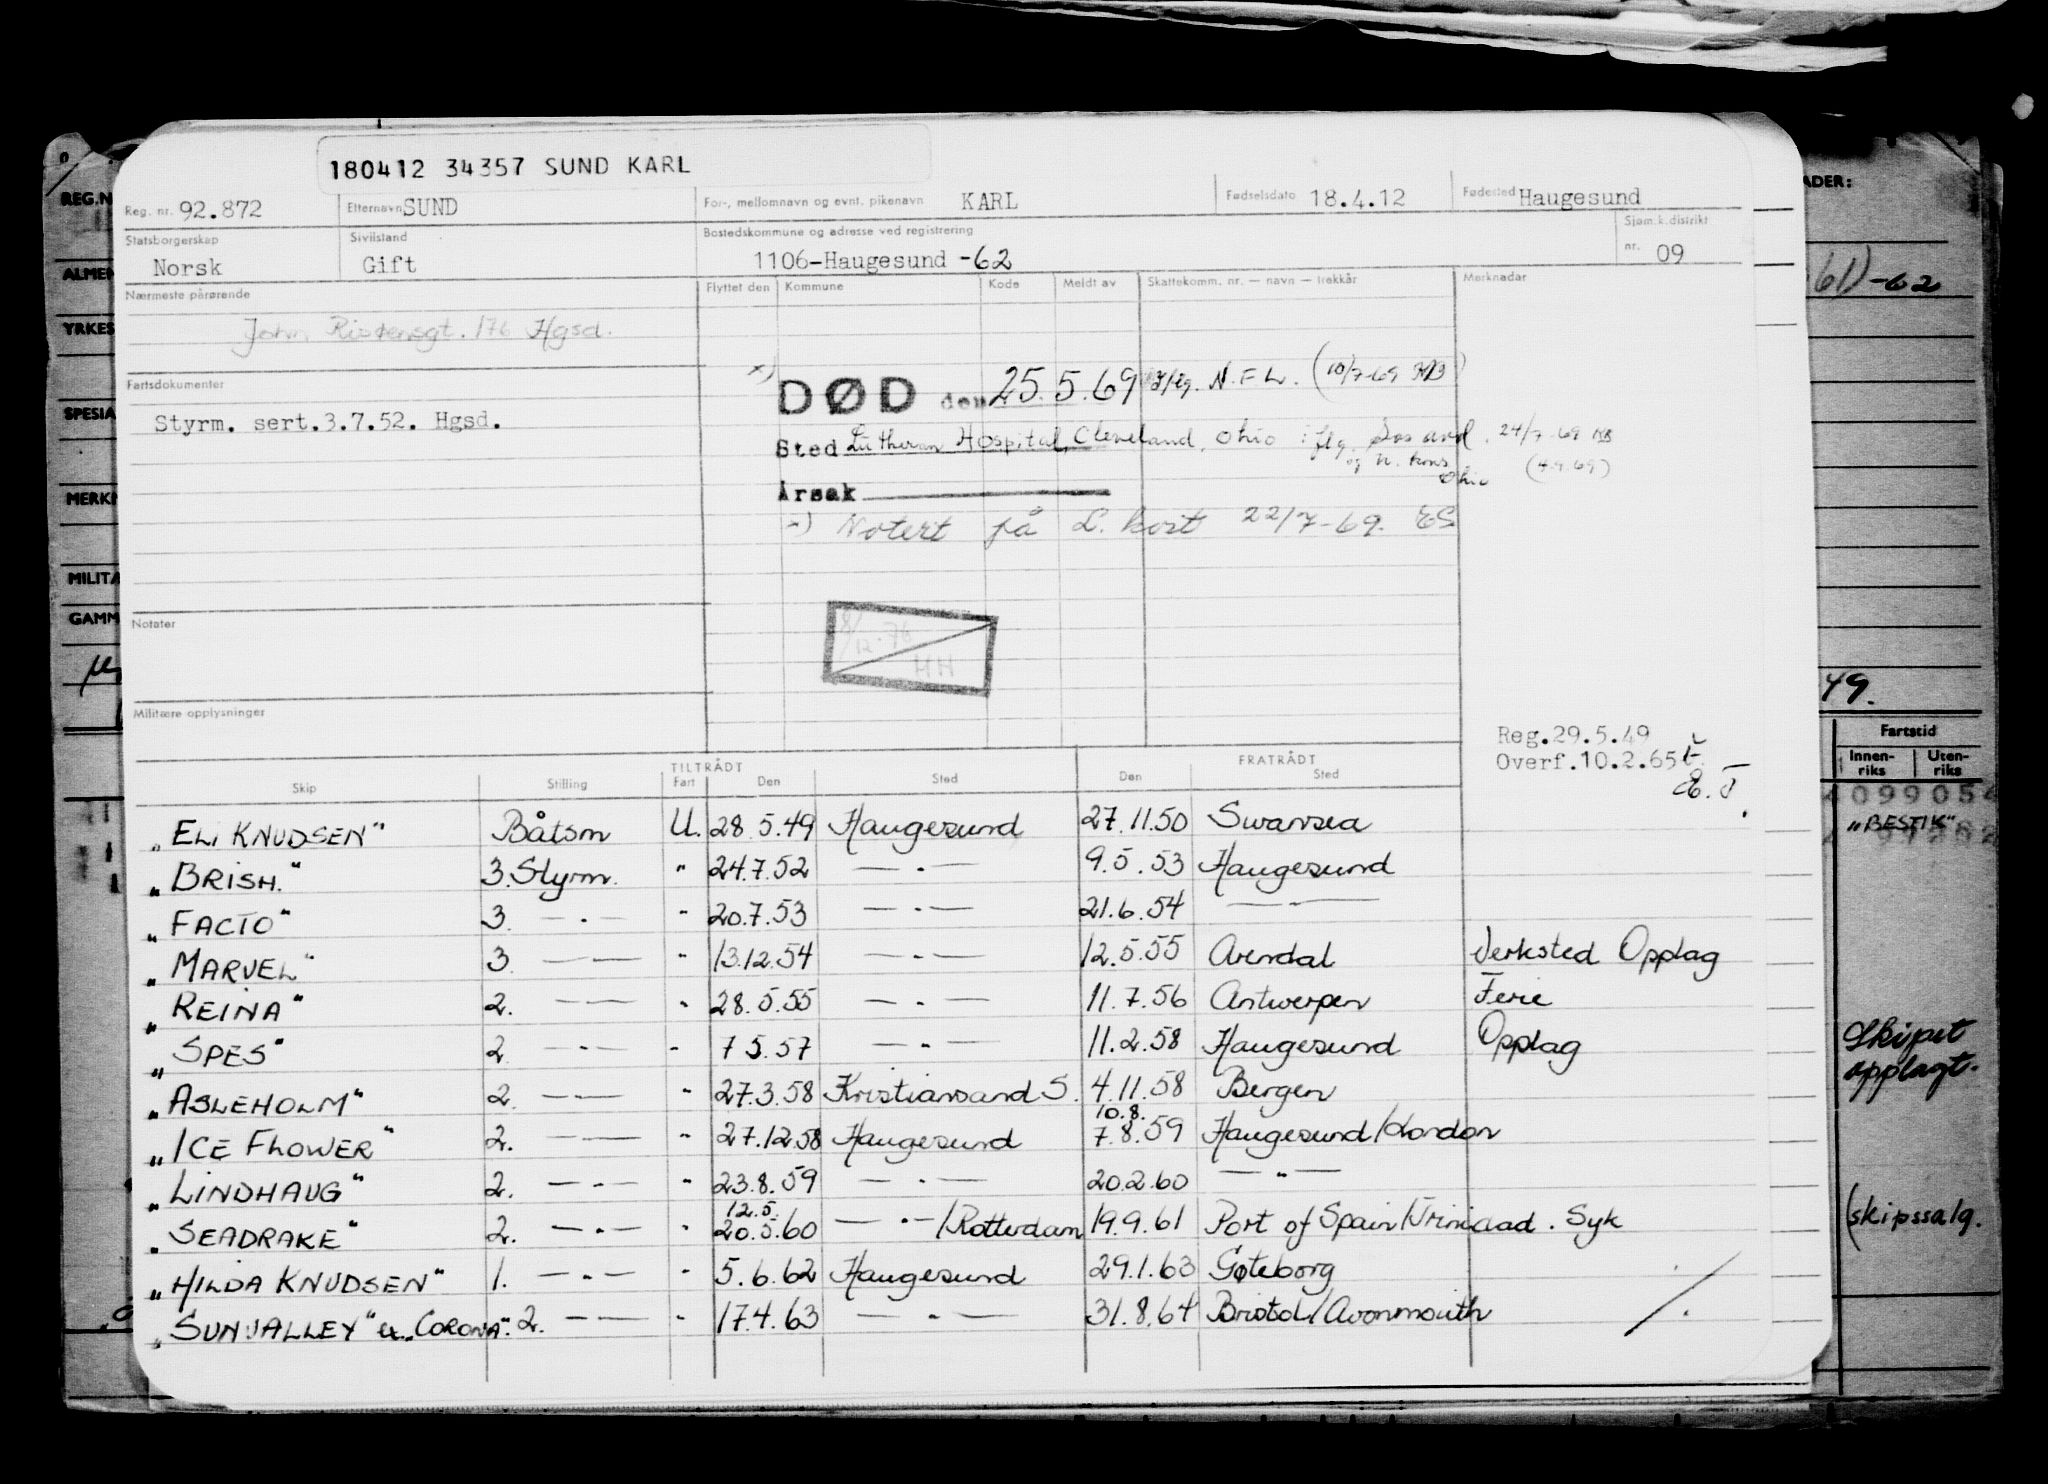 180412 34357 SUND KARL
Reg. nr. 92.872 Etternavn SUND For-, mellomnavn og evnt. pikenavn KARL Fødselsdato 18.4.12 Fødested Haugesund
Statsborgerskap Sivilstand Bostedskommune og adresse ved registrering Sjøm.k.distrikt
Norsk Gift 1106-Haugesund -62 nr. 09
Nærmeste pårørende Flyttet den Kommune Kode Meldt av Skattekomm. nr. — navn — trekkår Merknader
John Risøensgt. 176 Hgsd.
Fartsdokumenter
DØD den 25.5.69 N.F.L. (10/7-69
Styrm. sert.3.7.52. Hgsd.
Sted Lutheran Hospital, Cleveland, Ohio iflg. Sos avd. 24/7-69
og n. kons Ohio (4.9.69)
Årsak
Notert på L. kort 22/7-69. ES
8/12.76
HH
Notater
Militære opplysninger
Reg.29.5.49
Overf.10.2.65
E.T.
TILTRÅDT FRATRÅDT
Skip Stilling Fart Den Sted Den Sted
"ELI KNUDSEN" Båtsm U. 28.5.49 Haugesund 27.11.50 Swansea
"BRISH." 3.Styrm. " 24.7.52 — . — 9.5.53 Haugesund
"FACTO" 3. — . — " 20.7.53 — . — 21.6.54 — . —
"MARVEL" 3. — — " 13.12.54 — . — 12.5.55 Arendal Verksted Opplag
"REINA" 2. — — " 28.5.55 — . — 11.7.56 Antwerpen Ferie
"SPES" 2. — . — " 7.5.57 — . — 11.2.58 Haugesund Opplag
"ASLEHOLM" 2. — — " 27.3.58 Kristiansand S. 4.11.58 Bergen
10.8.
"ICE FLOWER" 2. — — " 27.12.58 Haugesund 7.8.59 Haugesund/London
"LINDHAUG" 2. — . — " 23.8.59 — . — 20.2.60 — " —
12.5.
"SEADRAKE" 2. — . — " 20.5.60 — " —/Rotterdam 19.9.61 Port of Spain/Trinidad. Syk
"HILDA KNUDSEN" 1. — . — " 5.6.62 Haugesund 29.1.63 Gøteborg
"SUNVALLEY" ex. "CORONA". 2. — — " 17.4.63 — . — 31.8.64 Bristol/Avonmouth
REG.N
ALMEN
YRKES
SPESIA
MERKN
MILITÆ
GAMM
ADER:
61)-62
49.
Fartstid
Innen-riks Uten-riks
"BESTIK"
Skipet
opplagt.
(skipssalg.